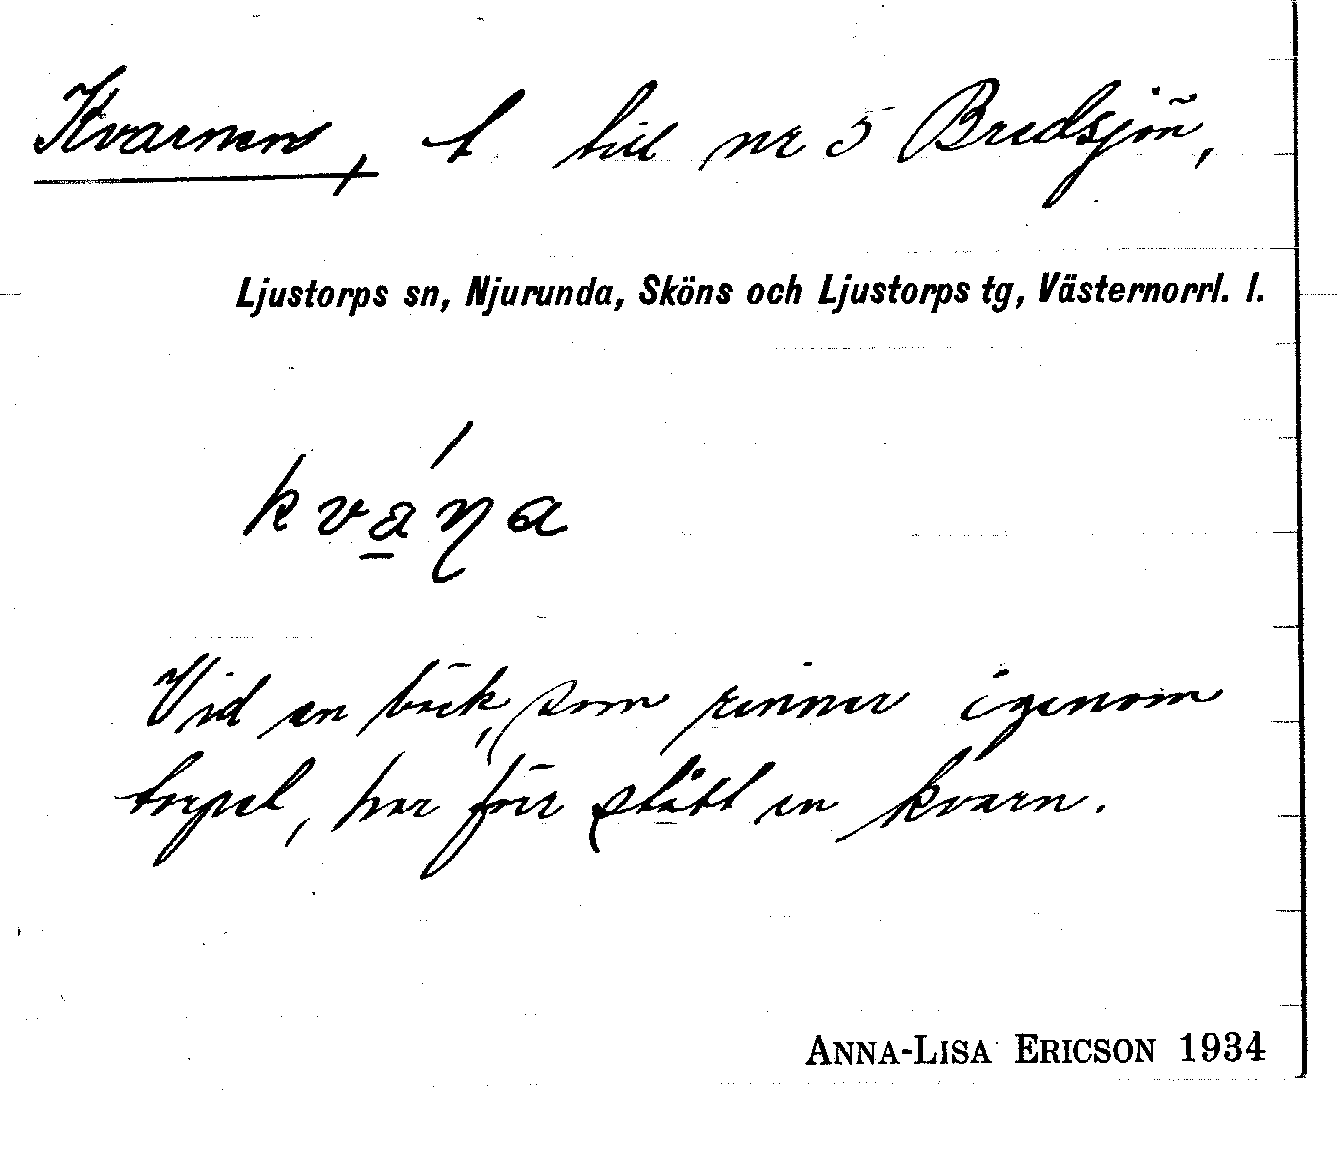 Kvarnen, t till nr 5 Bredsjön,
Ljustorps sn, Njurunda, Sköns och Ljustorps tg, Västernorrl. l.
kva̲´ꞃa
Vid en bäck, som rinner igenom
torpet, har förr stått en kvarn.
ANNA-LISA ERICSON 1934